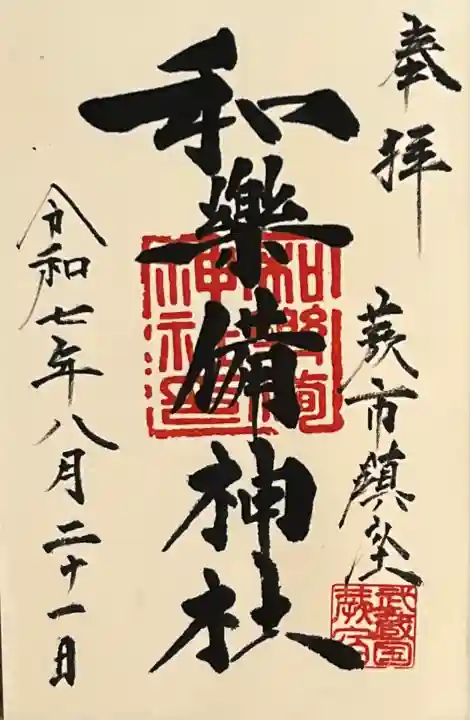 奉拝
蕨市鎮坐
武蔵国
蕨宿
和樂備神社
和樂備
神社
令和七年八月二十一日